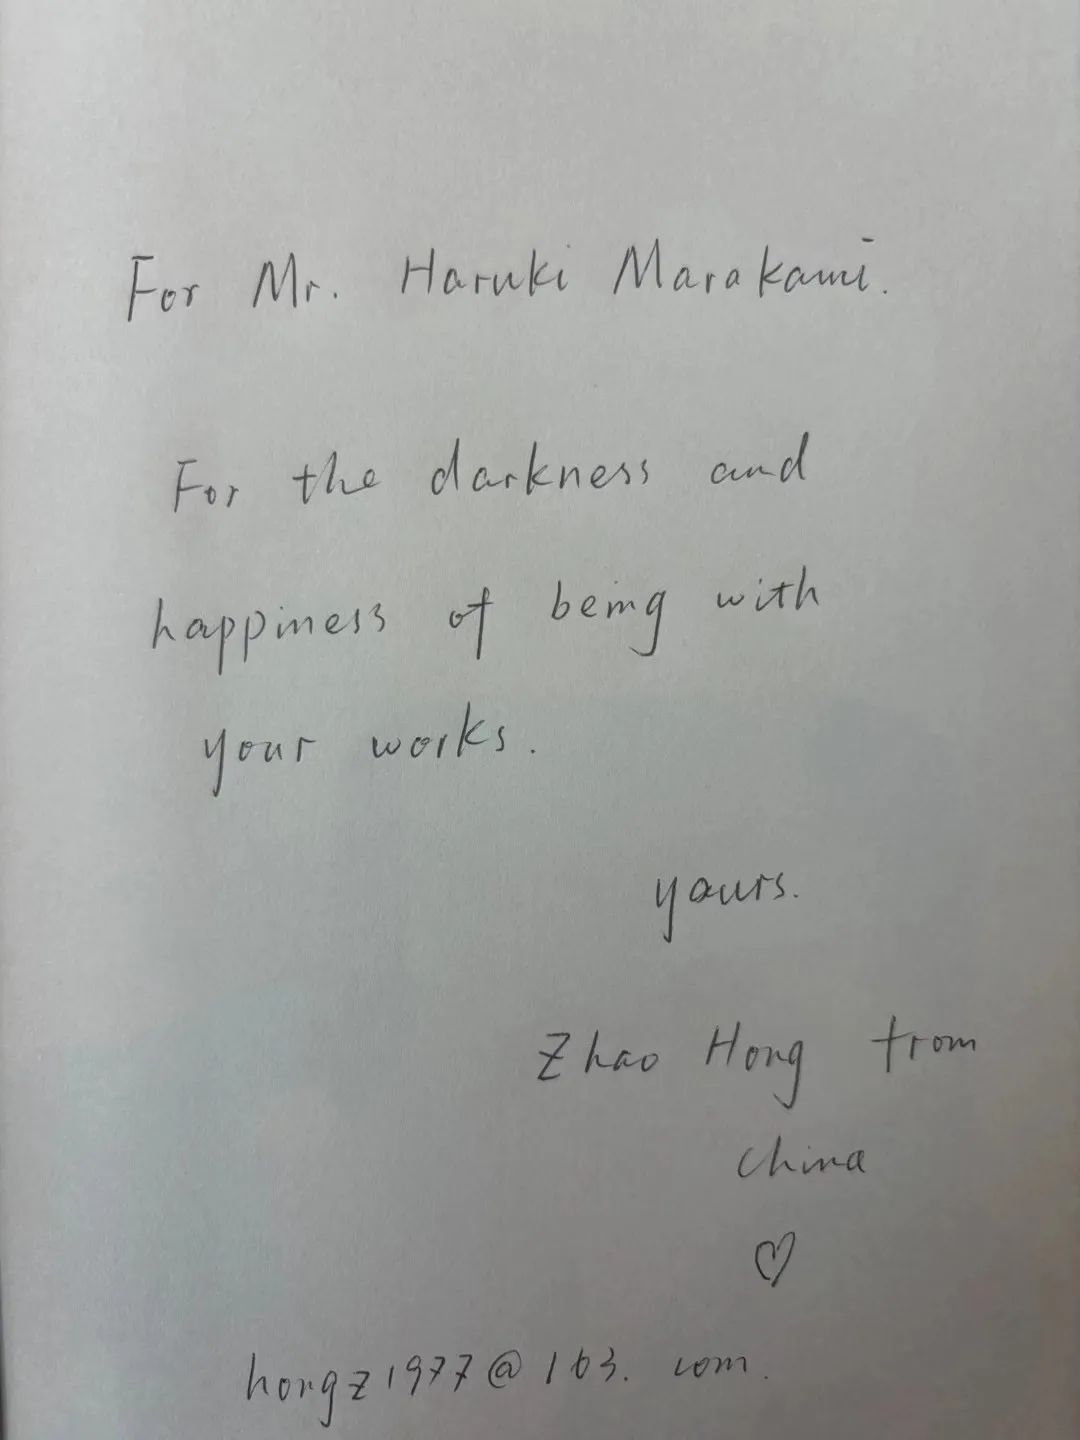 For Mr. Haruki Marakami.
For the darkness and
happiness of being with
your works.
yours.
Zhao Hong from
China
hongz1977@163.com.